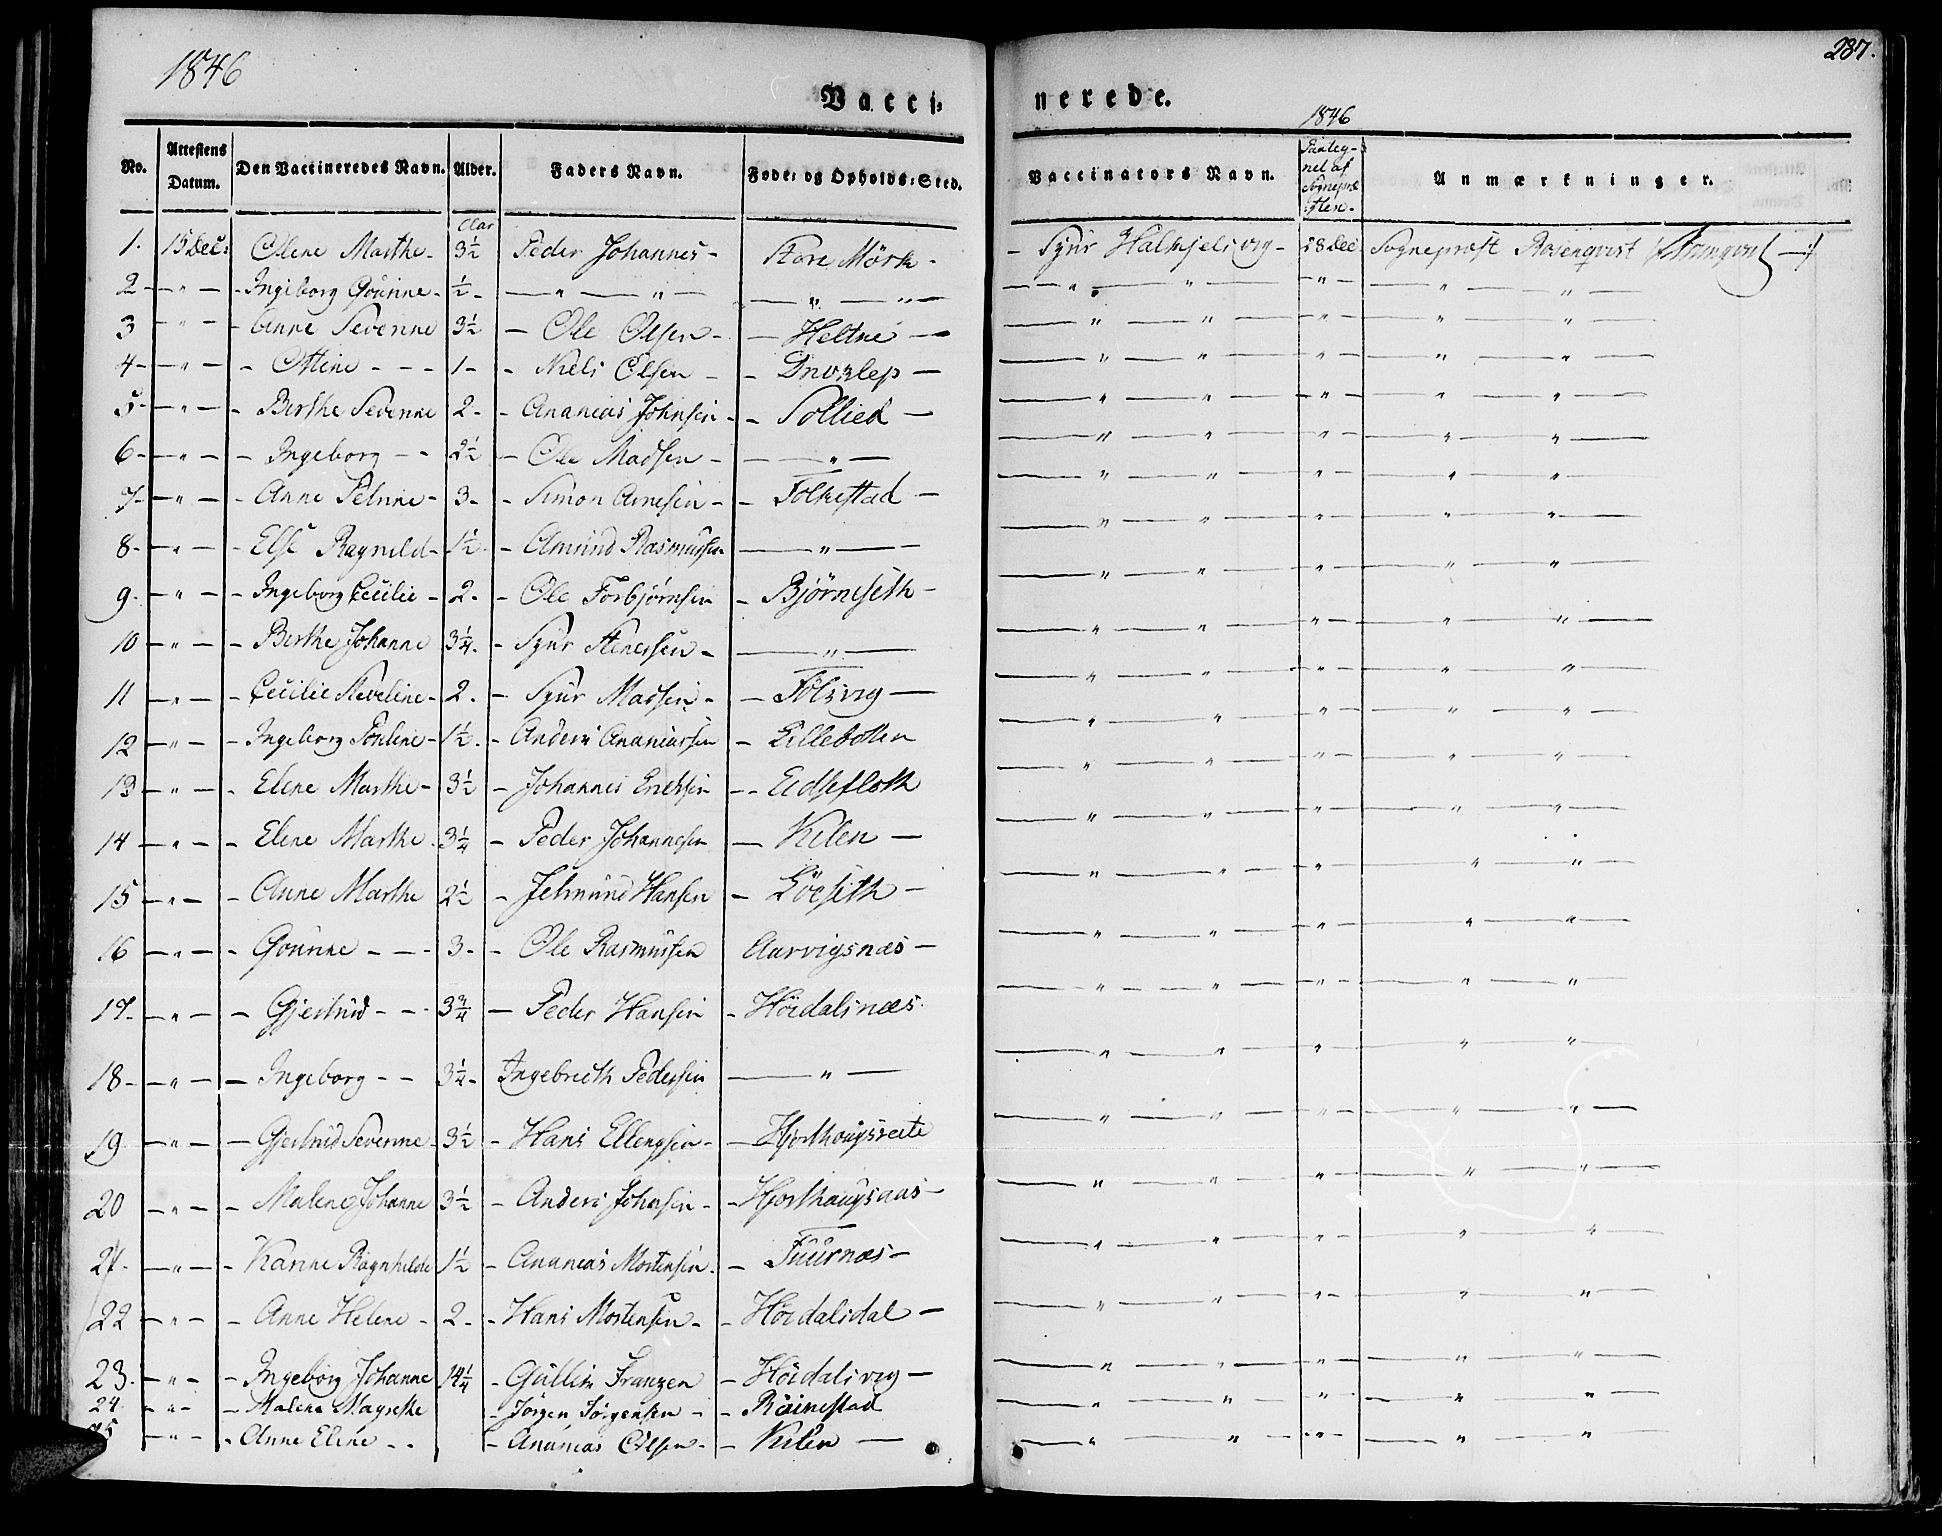 1846
287.
Vacci-
nerede.
1846
No. Attestens Datum. Den Vaccineredes Navn. Alder. Faders Navn. Føde- og Opholds-Sted. Vaccinators Navn. Anmærkninger.
Aar
1. 15 Dec: Olene Marthe - 3½ Peder Johannes - Store Mörk - - Syur Halkjelsvig - 28 Dec Sogneprost Rosenqvist
2 - " - - Ingeborg Gourine - ½ - — " — " — — " — " — — " — " — - " - — " — " —
3 - " - - Anne Severine 3½ - Ole Olsen - - Heltne - — " — " — - " - — " — " —
4 - - " - - Oline - - - 1 - - Niels Olsen - - — " — " — - " - — " — " —
5 - - " - - Berthe Severine 2 - - Ananias Johnsen - - Sollied - — " — " — - " - — " — " —
6 - - " - - Ingeborg - - 2½ - Ole Madsen - — " — — " — " — - " - — " — " —
7 - - " - - Anne Petrine - 3 - - Simon Arnesen - - Folkestad - — " — " — - " - — " — " —
8 - - " - - Else Ragnild - 1½ - - Amund Rasmussen — " — — " — " — - " - — " — " —
9. - " - - Ingeborg Cecilie - 2 - - Ole Torbjörnsen - Björneseth - — " — " — - " - — " — " —
10 - " - - Berthe Johanne 3¼ - - Syur Stenersen - — " — — " — " — - " - — " — " —
11 - " - - Cecilie 2 - - Syur Madsen - - — " — " — - " - — " — " —
12 - " - - Ingeborg 1½ - - Anders Ananiassen - Lillebotten — " — " — - " - — " — " —
13 - " - - Elene Marthe - 3½ - Johannes Ericksen - - Eidsefloth — " — " — - " - — " — " —
14 - " - - Elene Marthe 3¼ - Peder Johannesen - Kilen - — " — " — - " - — " — " —
15 - " - - Anne Marthe 2½ - Jetmund Hansen - Löeseth - — " — " — - " - — " — " —
16 - " - - Gourine - - - 3 - - Ole Rasmussen Aarvigsnæs - — " — " — - " - — " — " —
17 - - " - - Gjertrud - - - 3¾ - Peder Hansen - Höidalsnæs - — " — " — - " - — " — " —
18 - - " - - Ingeborg - - 3¼ - Ingebrecth Pedersen — " — — " — " — - " - — " — " —
19 - " - - Gjertrud Severine - 3½ - Hans Ellengsen - - Hjorthougsreite — " — " — - " - — " — " —
20 - " - - Malene Johanne 3½ - Anders Johnsen - - Hjorthougsaas - — " — " — - " - — " — " —
21 - - " - - Ragnhilde 1½ - Ananias Mortensen - - Fuurnæs - — " — " — - " - — " — " —
22 - " - - Anne Helene - 2 - - Hans Mortensen - - Höidalsdal - — " — " — - " - — " — " —
23 - - " - - Ingeborg Johanne 14¼ - Gullik Franzen - Höidalsvig - — " — " — - " - — " — " —
24 - " - - Malene Magrethe - Jörgen Jörgensen - - Röinestad — " — " — - " - — " — " —
25 - " - - Anne Eline - - - Ananias Olsen - - Kilen - — " — " — - " - — " — " —